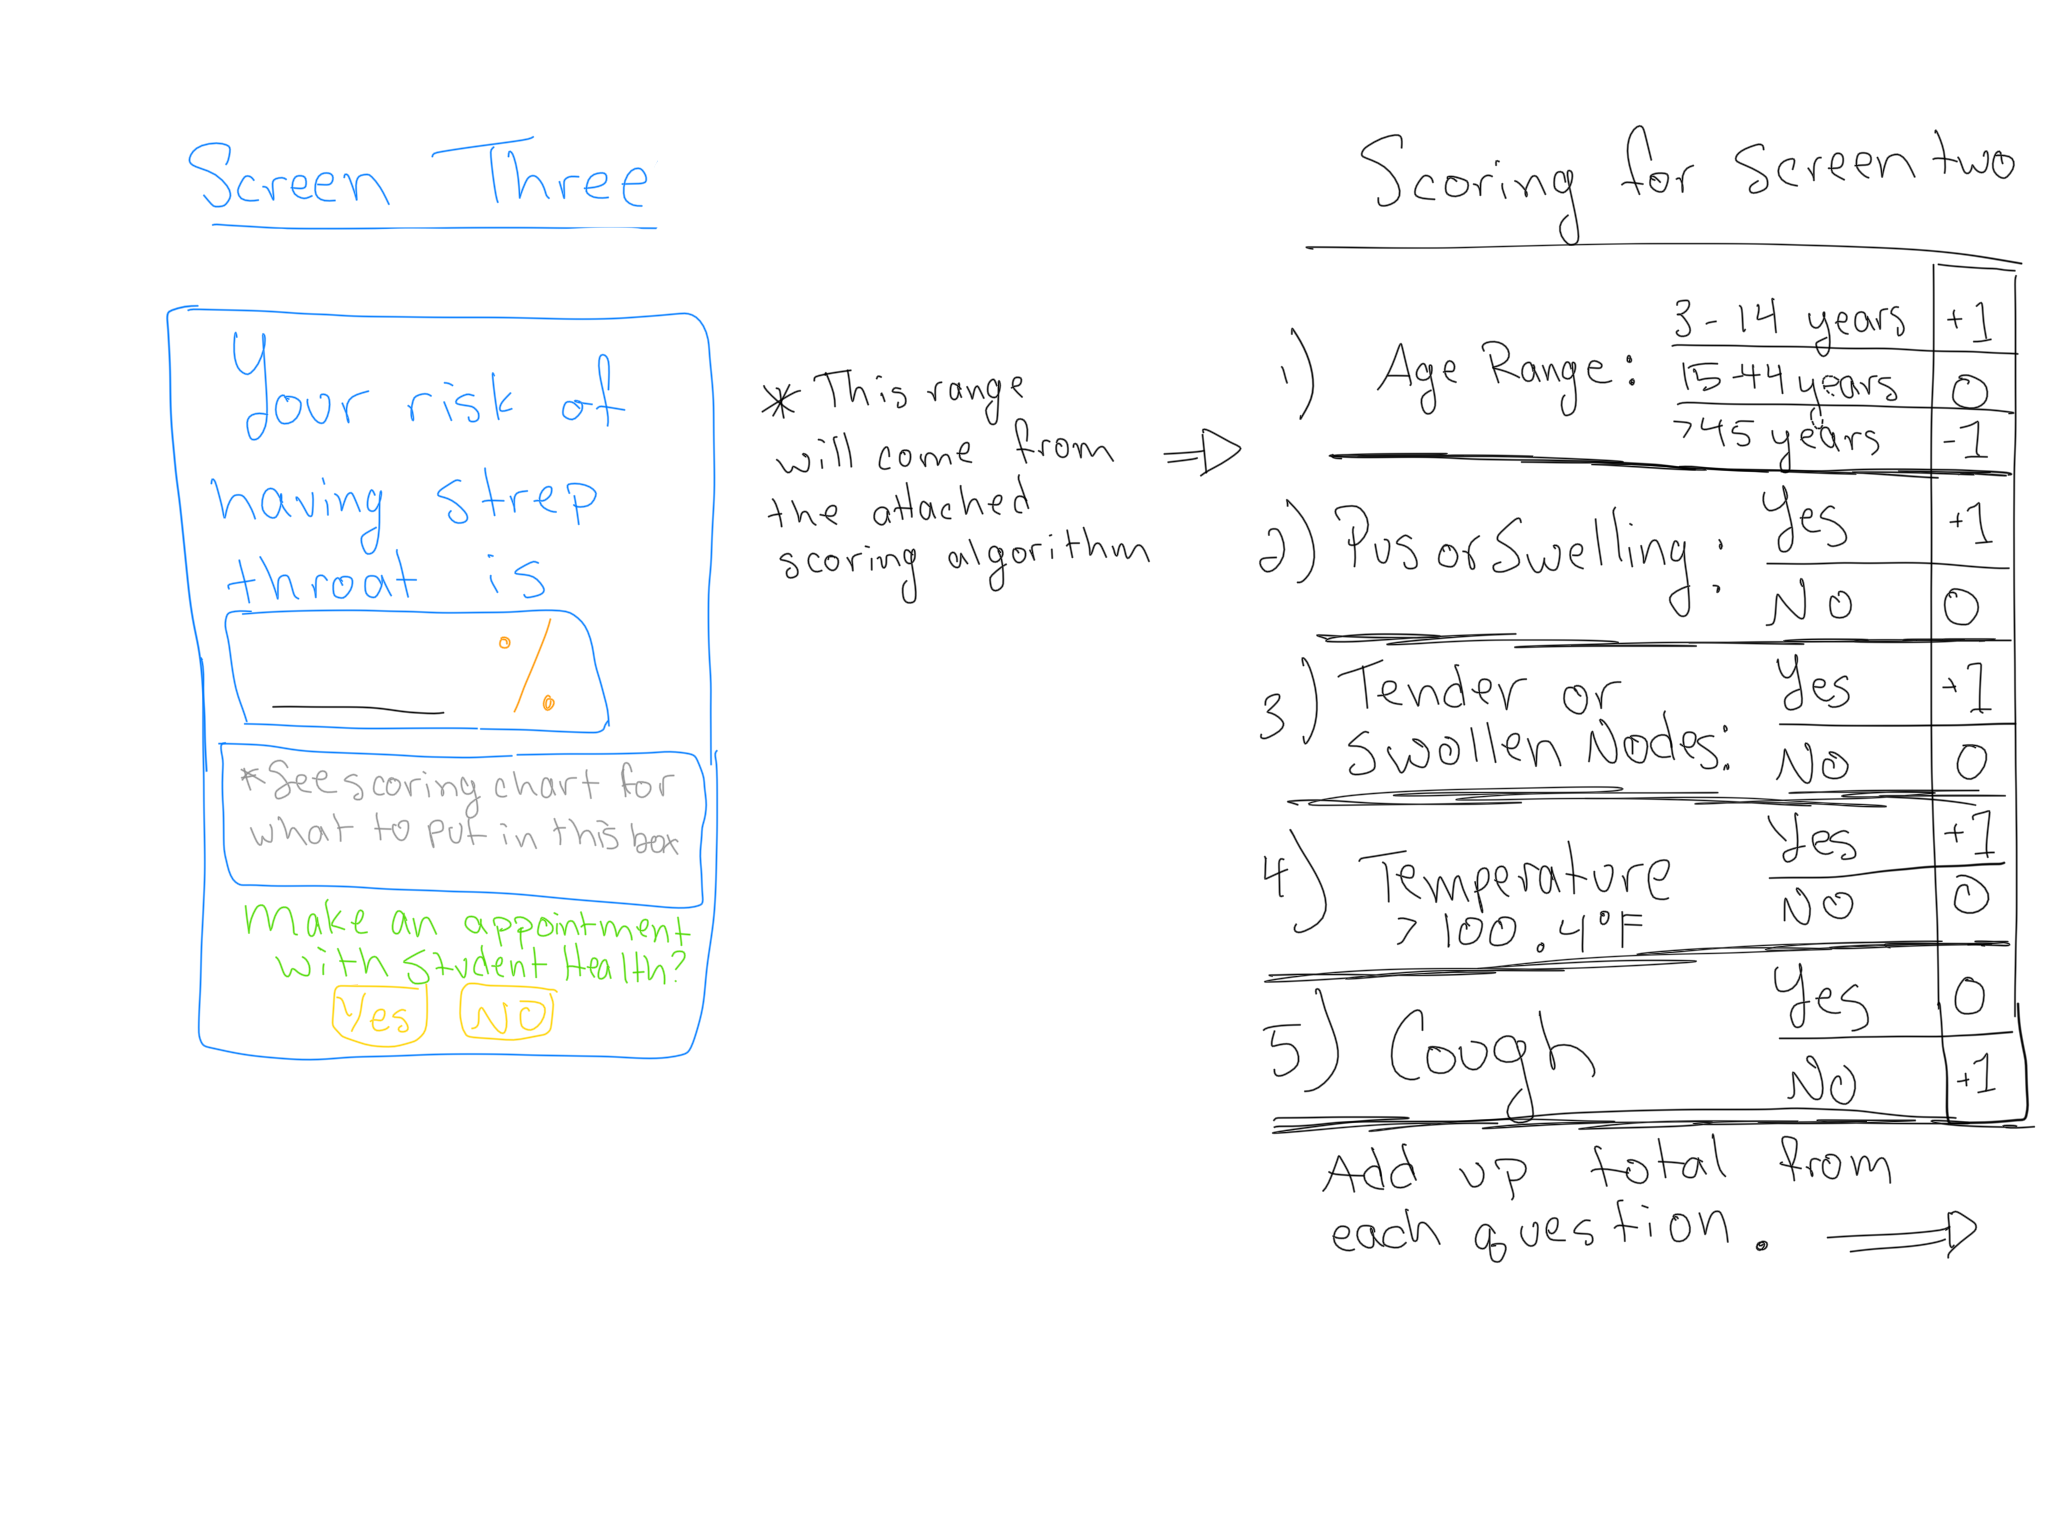 Screen Three
Your risk of
having strep
throat is
%
*See scoring chart for
what to put in this box
Make an appointment
with Student Health?
Yes NO
* This range
will come from
the attached
scoring algorithm
Scoring for screen two
1) Age Range:
3-14 years +1
15-44 years 0
>45 years -1
2) Pus or Swelling:
Yes +1
No 0
3) Tender or
Swollen Nodes:
Yes +1
No 0
4) Temperature
>100.4°F
Yes +1
No 0
5) Cough
Yes 0
No +1
Add up total from
each question.